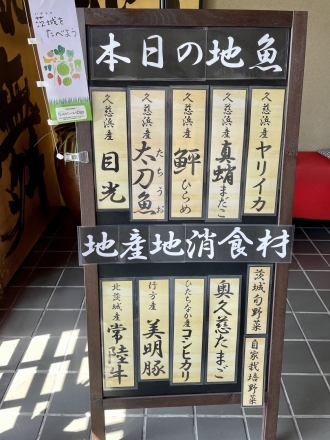 茨城を
たべよう
本日の地魚
久慈浜産 ヤリイカ
久慈浜産 真蛸 まだこ
久慈浜産 鮃 ひらめ
久慈浜産 太刀魚 たちうお
久慈浜産 目光
地産地消食材
茨城旬野菜
自家栽培野菜
奥久慈たまご
ひたちなか産 コシヒカリ
行方産 美明豚
北茨城産 常陸牛